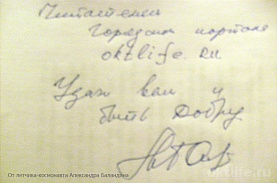 Читателям
Городского портала
oktlife.ru
Удачи вам и
быть добру
От летчика-космонавта Александра Баландина
oktlife.ru